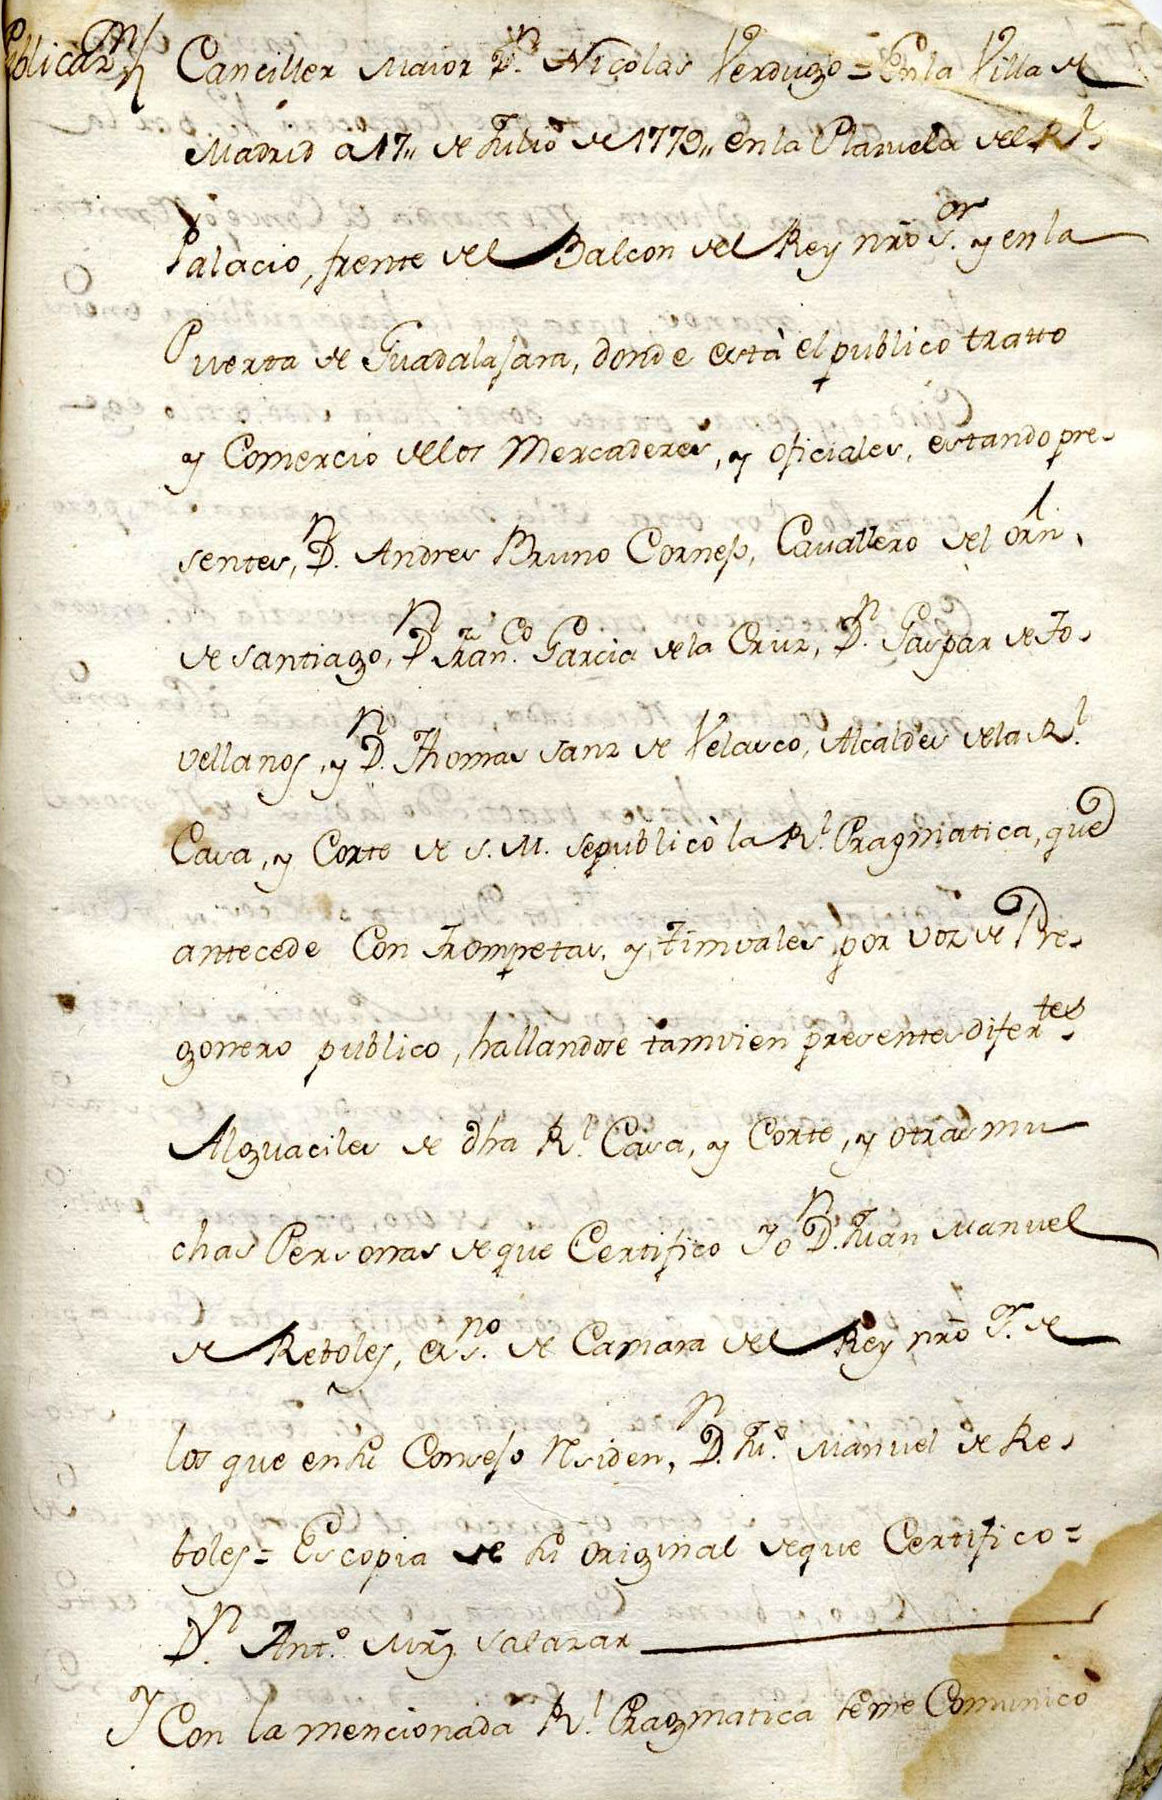 Publicaz.n Canciller Maior D.n Nicolas Verdugo = En la Villa de
Madrid a 17,, de Julio de 1779,, en la Plazuela del R.l
Palacio, frente del Balcon del Rey nrõ S.or y en la
Puerta de Guadalajara, donde està el publico tratto
y Comercio dellos Mercaderes, y oficiales, estando pre-
sentes, D.n Andres Bruno Cornejo, Cavallero del orñ.
de Santiago, D.n Fran.co Garcia de la Cruz, D.n Gaspar de Jo-
vellanos, y D.n Thomas Sanz de Velasco, Alcaldes de la R.l
Casa, y Corte de S. M. se publicò la R.l Pragmatica, que
antecede Con Trompetas, y Timvales, por voz de Pre-
gonero publico, hallandose tamvien presentes difer.tes
Alguaciles de dha R.l Casa, y Corte, y otras mu
chas Personas de que Certifico Yo D.n Juan Manuel
de Reboles, es.no de Camara del Rey nrõ S.or de
los que en su Consejo Residen, D.n Ju.o Manuel de Re-
boles = Es copia de su original de que Certifico =
D.n Ant.o Mrz Salazar
Y Con la mencionada R.l Pragmatica se me Comunicò